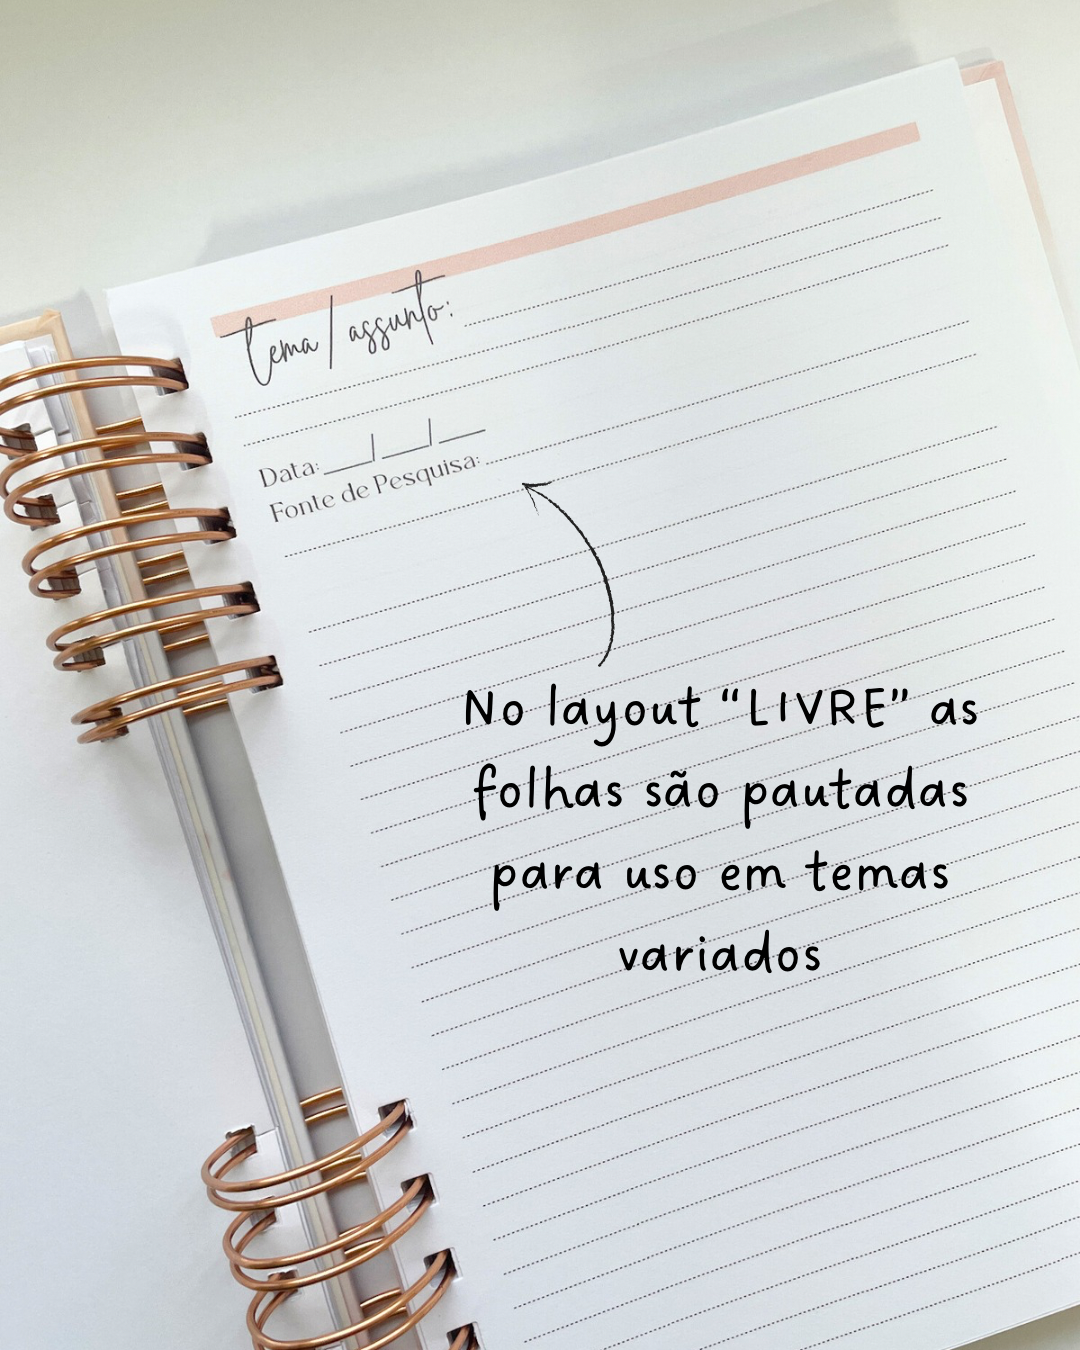 tema / assunto:
Data: ___/___/___
Fonte de Pesquisa:
No layout “LIVRE” as
folhas são pautadas
para uso em temas
variados